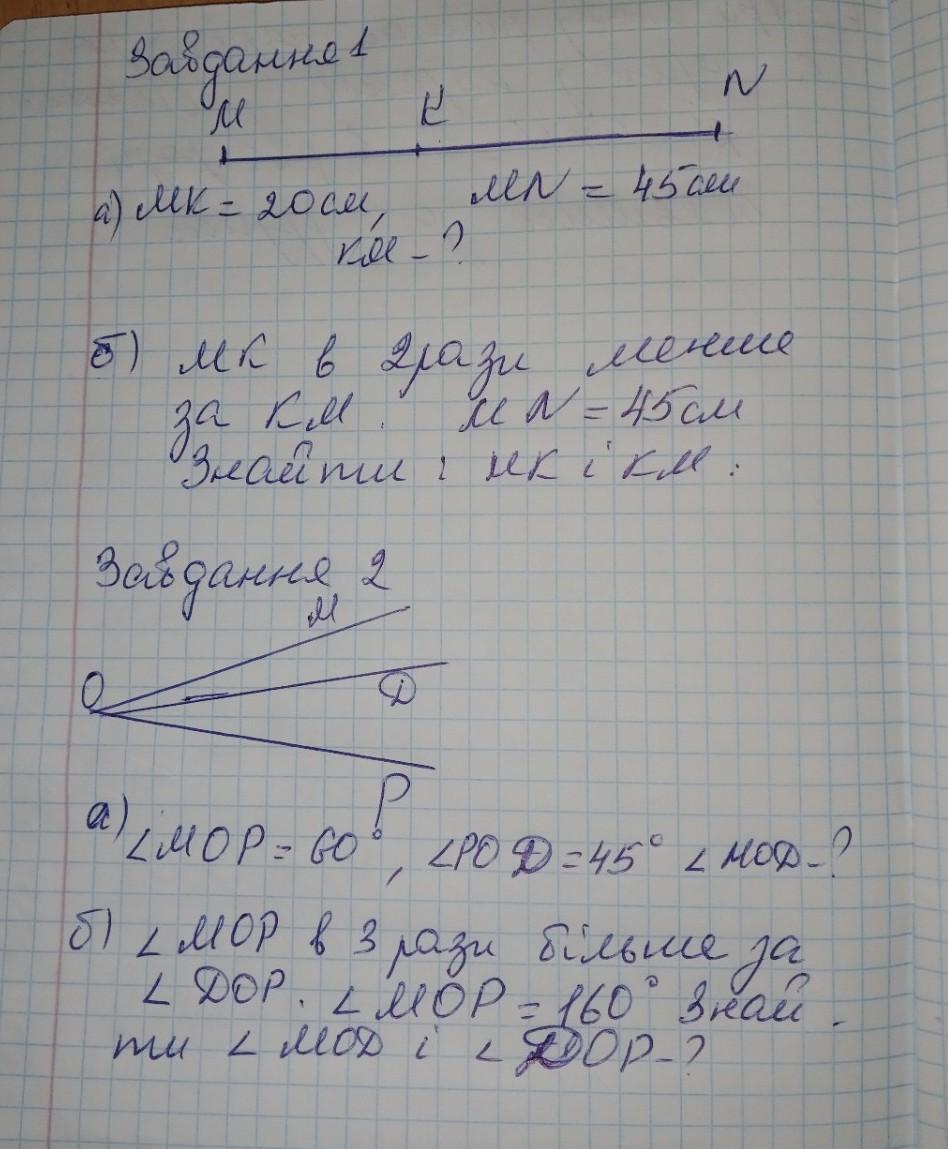 Завдання 1
M K N
а) MK = 20см, MN = 45см
KM - ?
б) MK в 2 рази менше
за KM. MN = 45см
Знайти : MK і KM.
Завдання 2
M
O
D
P
а) ∠MOP = 60°, ∠POD = 45° ∠MOD - ?
б) ∠MOP в 3 рази більше за
∠DOP. ∠MOP = 160° Знай -
ти ∠MOD і ∠DOP - ?